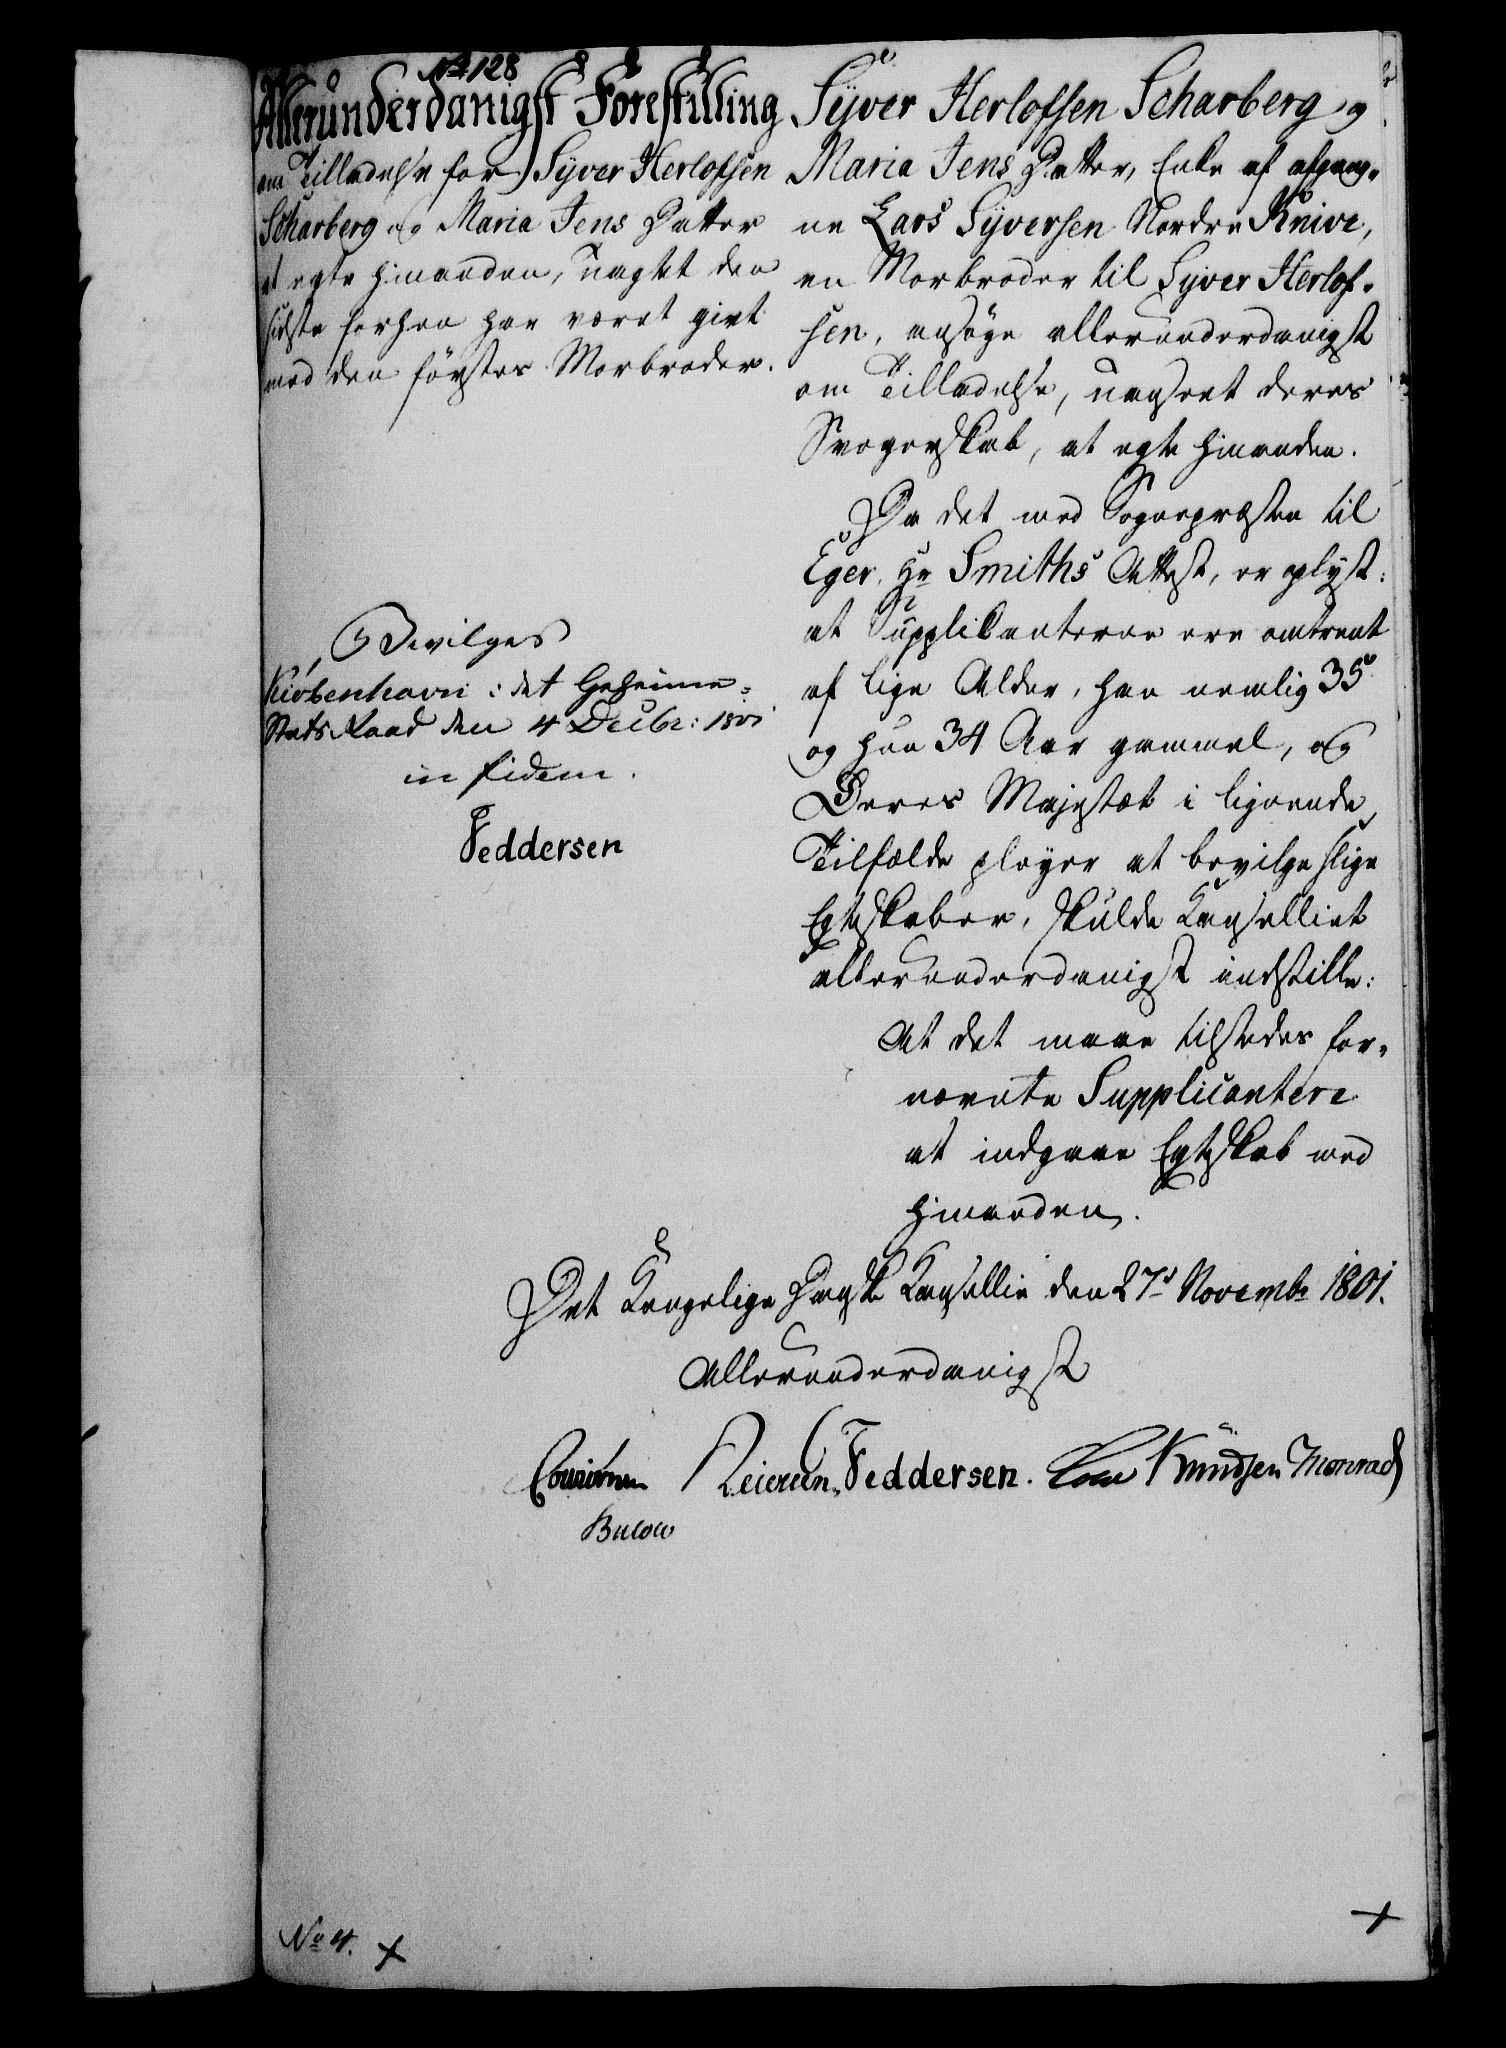 No 128
Allerunderdanigst Forestilling
om Tilladelse for Syver Herlofsen
Scharberg og Maria Jens Datter
at egte hinanden, uagtet den
sidste forhen har været givt
med den førstes Morbroder.
Bevilges
Kiøbenhavn i det Geheime-
Stats-Raad den 4 Decbr: 1801
in fidem.
Feddersen
Syver Herlofsen Scharberg og
Maria Jens Datter, Enke af afgang-
ne Lars Syversen Nordre Knive,
en Morbroder til Syver Herlof-
sen, ansøge allerunderdanigst
om Tilladelse, uanseet deres
Svogerskab, at egte hinanden.
Da det med Sognepræsten til
Eger, Hr Smiths Attest, er oplyst:
at Supplikanterne ere omtrent
af lige Alder, han nemlig 35
og hun 34 Aar gammel, og
Deres Majestæt i lignende
Tilfælde pleyer at bevilge slige
Egteskaber, skulde Kanselliet
allerunderdanigst indstille:
At det maae tilstedes for-
nævnte Supplicantere
at indgaae Egteskab med
hinanden.
Det Kongelige Danske Kansellie den 27d Novembr 1801.
Allerunderdanigst
Feddersen. Knudsen Monrad
Bülow
No 4. x
x